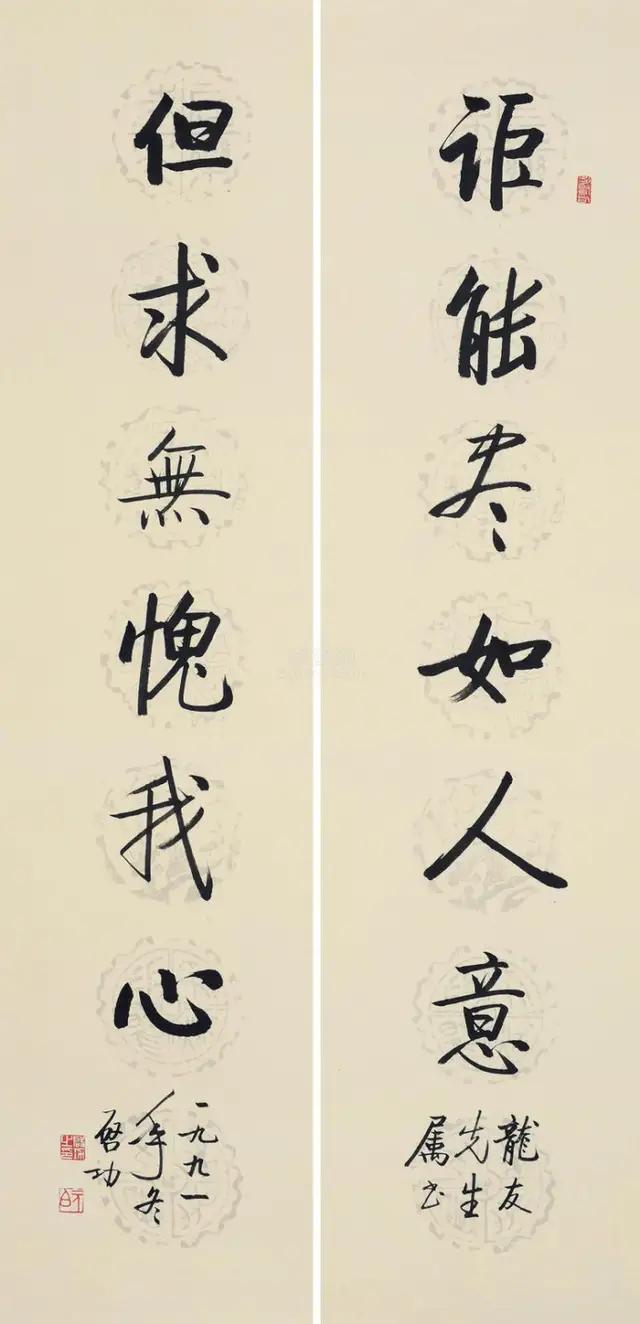 讵能尽如人意
龍友
先生
属书
但求無愧我心
一九九一
年冬
啓功